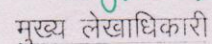 मुख्य लेखाधिकारी